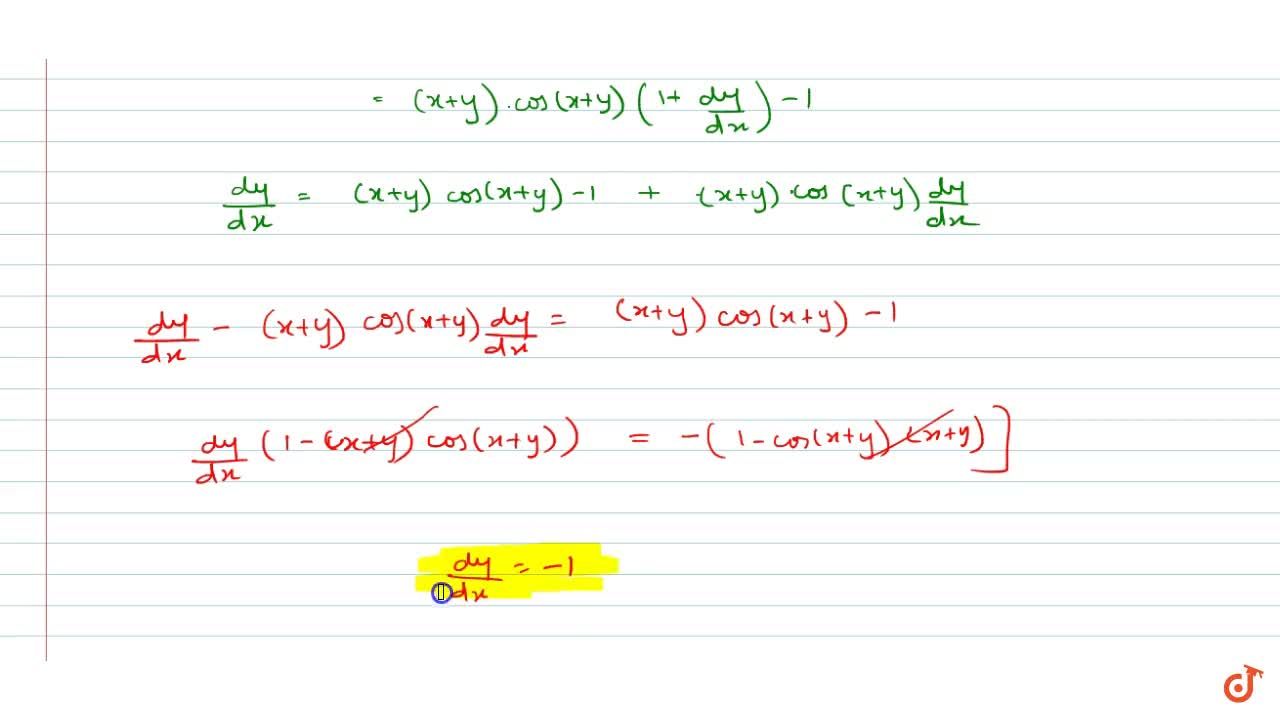 = (x+y).cos(x+y)(1+ dy/dx) -1
dy/dx = (x+y) cos(x+y) -1 + (x+y).cos(x+y) dy/dx
dy/dx - (x+y) cos(x+y) dy/dx = (x+y) cos(x+y) -1
dy/dx (1-(x+y) cos(x+y)) = -(1-cos(x+y) (x+y))]
dy/dx = -1